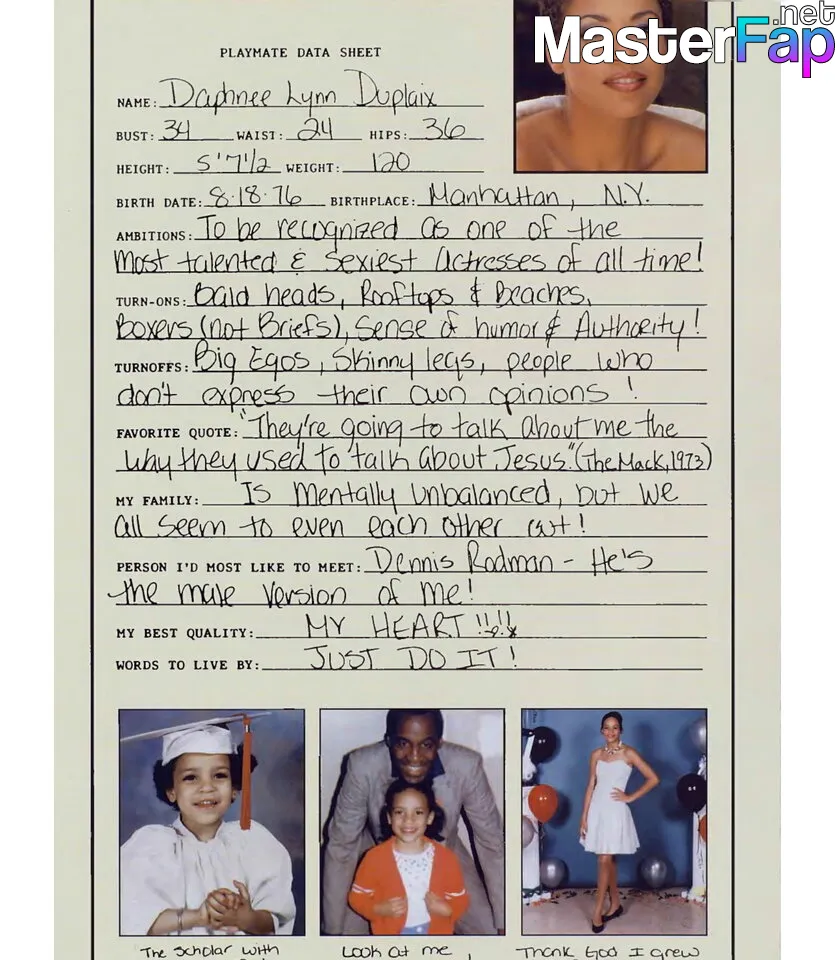 MasterFap.net
PLAYMATE DATA SHEET
NAME: Daphnee Lynn Duplaix
BUST: 34 WAIST: 24 HIPS: 36
HEIGHT: 5'7 1/2 WEIGHT: 120
BIRTH DATE: 8·18·76 BIRTHPLACE: Manhattan, N.Y.
AMBITIONS: To be recognized as one of the
Most talented & Sexiest Actresses of all time!
TURN-ONS: Bald heads, Rooftops & Beaches,
Boxers (not Briefs), Sense of humor & Authority!
TURNOFFS: Big Egos, Skinny legs, people who
don't express their own opinions!
FAVORITE QUOTE: "They're going to talk about me the
way they used to talk about Jesus." (The Mack, 1973)
MY FAMILY: Is Mentally Unbalanced, but we
all seem to even each other out!
PERSON I'D MOST LIKE TO MEET: Dennis Rodman - He's
the male version of me!
MY BEST QUALITY: MY HEART!!!!
WORDS TO LIVE BY: JUST DO IT!
The Scholar with
Look at me,
Thank God I grew